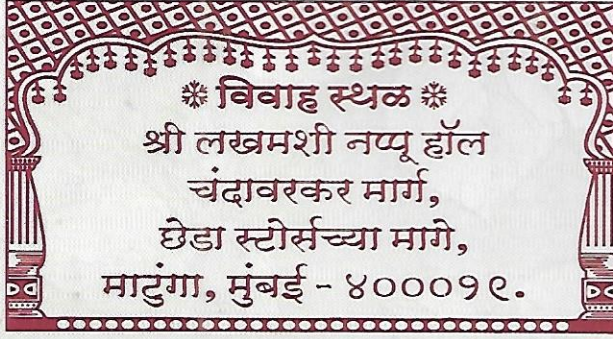 ❉ विवाह स्थळ ❉
श्री लखमशी नप्पू हॉल
चंदावरकर मार्ग,
छेडा स्टोर्सच्या मागे,
माटुंगा, मुंबई - ४०००१९.